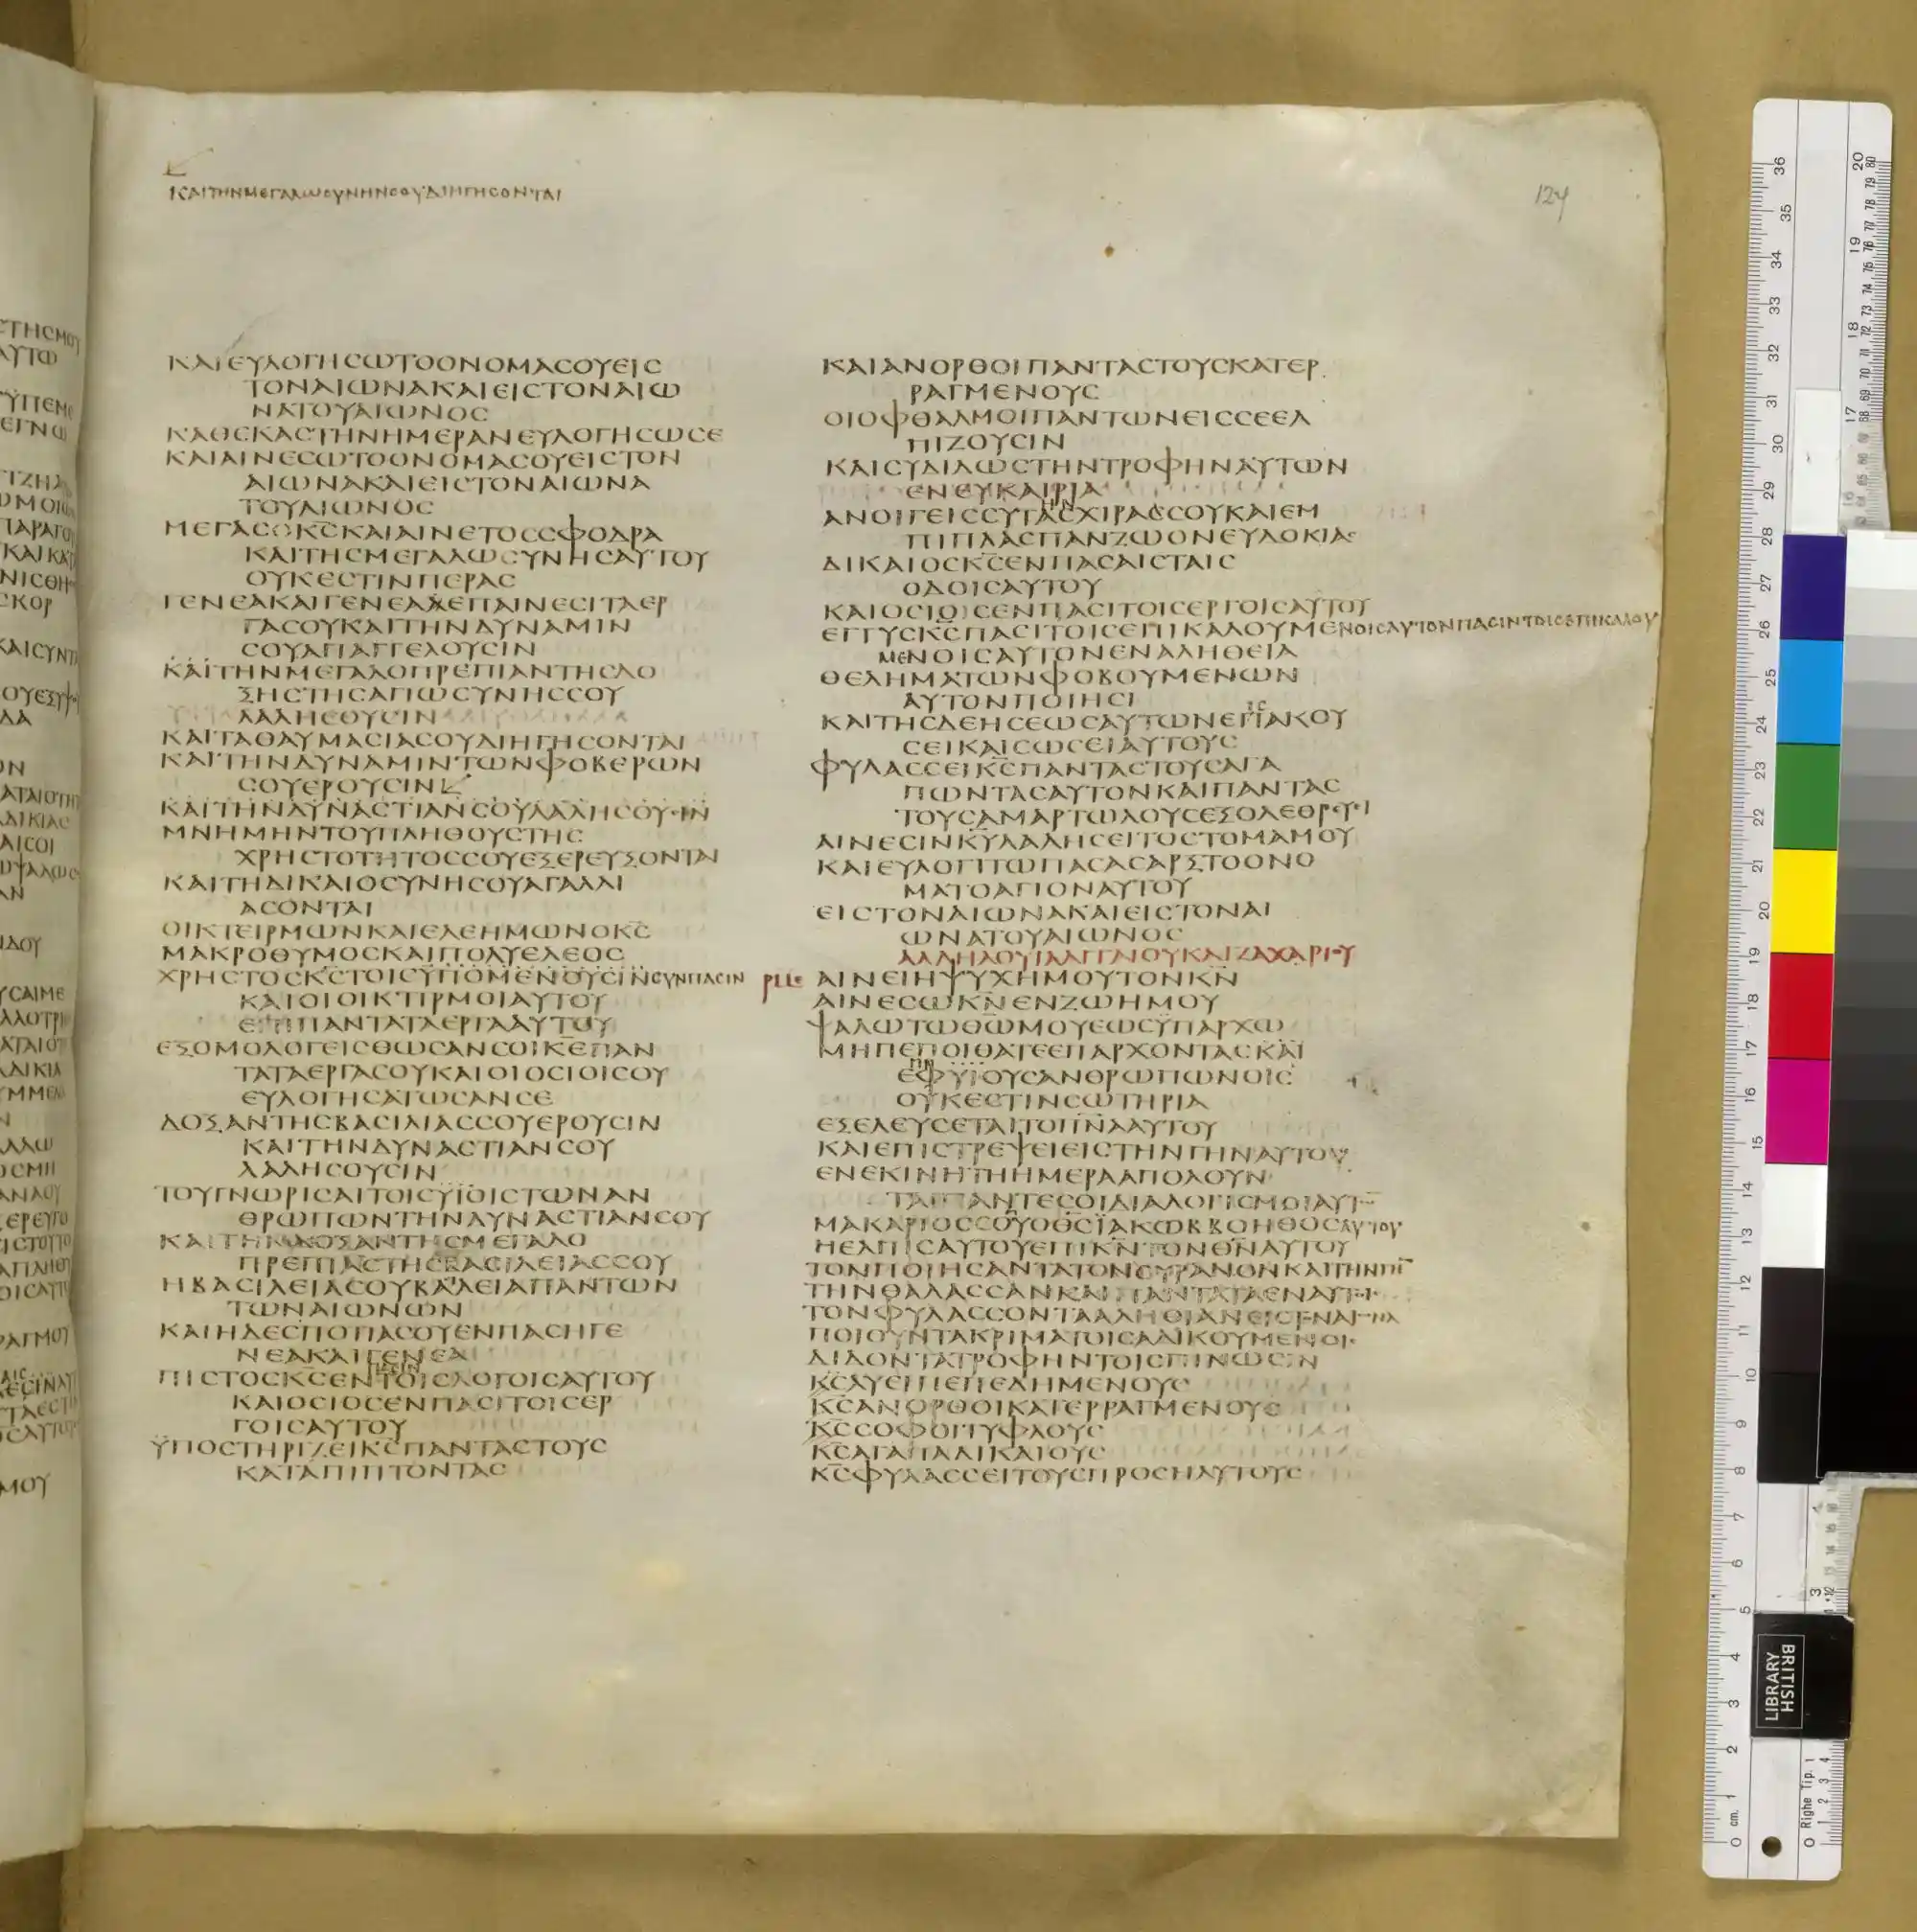 ΚΑΙΤΗΝΜΕΓΑΛΩΣΥΝΗΝΣΟΥΔΙΗΓΗΣΟΝΤΑΙ
124
ΚΑΙΕΥΛΟΓΗΣΩΤΟΟΝΟΜΑΣΟΥΕΙΣ
ΤΟΝΑΙΩΝΑΚΑΙΕΙΣΤΟΝΑΙΩ
ΝΑΤΟΥΑΙΩΝΟΣ
ΚΑΘΕΚΑΣΤΗΝΗΜΕΡΑΝΕΥΛΟΓΗΣΩΣΕ
ΚΑΙΑΙΝΕΣΩΤΟΟΝΟΜΑΣΟΥΕΙΣΤΟΝ
ΑΙΩΝΑΚΑΙΕΙΣΤΟΝΑΙΩΝΑ
ΤΟΥΑΙΩΝΟΣ
ΜΕΓΑΣΟΚΣΚΑΙΑΙΝΕΤΟΣΣΦΟΔΡΑ
ΚΑΙΤΗΣΜΕΓΑΛΩΣΥΝΗΣΑΥΤΟΥ
ΟΥΚΕΣΤΙΝΠΕΡΑΣ
ΓΕΝΕΑΚΑΙΓΕΝΕΑΕΠΑΙΝΕΣΙΤΑΕΡ
ΓΑΣΟΥΚΑΙΤΗΝΔΥΝΑΜΙΝ
ΣΟΥΑΠΑΓΓΕΛΟΥΣΙΝ
ΚΑΙΤΗΝΜΕΓΑΛΟΠΡΕΠΙΑΝΤΗΣΔΟ
ΞΗΣΤΗΣΑΓΙΩΣΥΝΗΣΣΟΥ
ΛΑΛΗΣΟΥΣΙΝ
ΚΑΙΤΑΘΑΥΜΑΣΙΑΣΟΥΔΙΗΓΗΣΟΝΤΑΙ
ΚΑΙΤΗΝΔΥΝΑΜΙΝΤΩΝΦΟΒΕΡΩΝ
ΣΟΥΕΡΟΥΣΙΝ
ΚΑΙΤΗΝΔΥΝΑΣΤΙΑΝΣΟΥΛΑΛΗΣΟΥΣΙΝ
ΜΝΗΜΗΝΤΟΥΠΛΗΘΟΥΣΤΗΣ
ΧΡΗΣΤΟΤΗΤΟΣΣΟΥΕΞΕΡΕΥΞΟΝΤΑΙ
ΚΑΙΤΗΔΙΚΑΙΟΣΥΝΗΣΟΥΑΓΑΛΛΙ
ΑΣΟΝΤΑΙ
ΟΙΚΤΕΙΡΜΩΝΚΑΙΕΛΕΗΜΩΝΟΚΣ
ΜΑΚΡΟΘΥΜΟΣΚΑΙΠΟΛΥΕΛΕΟΣ
ΧΡΗΣΤΟΣΚΣΤΟΙΣΫΠΟΜΕΝΟΥΣΙΝΣΥΝΠΑΣΙΝ
ΚΑΙΟΙΟΙΚΤΙΡΜΟΙΑΥΤΟΥ
ΕΠΙΠΑΝΤΑΤΑΕΡΓΑΑΥΤΟΥ
ΕΞΟΜΟΛΟΓΕΙΣΘΩΣΑΝΣΟΙΚΕΠΑΝ
ΤΑΤΑΕΡΓΑΣΟΥΚΑΙΟΙΟΣΙΟΙΣΟΥ
ΕΥΛΟΓΗΣΑΤΩΣΑΝΣΕ
ΔΟΞΑΝΤΗΣΒΑΣΙΛΙΑΣΣΟΥΕΡΟΥΣΙΝ
ΚΑΙΤΗΝΔΥΝΑΣΤΙΑΝΣΟΥ
ΛΑΛΗΣΟΥΣΙΝ
ΤΟΥΓΝΩΡΙΣΑΙΤΟΙΣΥΪΟΙΣΤΩΝΑΝ
ΘΡΩΠΩΝΤΗΝΔΥΝΑΣΤΙΑΝΣΟΥ
ΚΑΙΤΗΝΔΟΞΑΝΤΗΣΜΕΓΑΛΟ
ΠΡΕΠΙΑΣΤΗΣΒΑΣΙΛΕΙΑΣΣΟΥ
ΗΒΑΣΙΛΕΙΑΣΟΥΒΑΣΙΛΕΙΑΠΑΝΤΩΝ
ΤΩΝΑΙΩΝΩΝ
ΚΑΙΗΔΕΣΠΟΤΙΑΣΟΥΕΝΠΑΣΗΓΕ
ΝΕΑΚΑΙΓΕΝΕΑ
ΠΑΣΙΝ
ΠΙΣΤΟΣΚΣΕΝΤΟΙΣΛΟΓΟΙΣΑΥΤΟΥ
ΚΑΙΟΣΙΟΣΕΝΠΑΣΙΤΟΙΣΕΡ
ΓΟΙΣΑΥΤΟΥ
ΫΠΟΣΤΗΡΙΖΕΙΚΣΠΑΝΤΑΣΤΟΥΣ
ΚΑΤΑΠΙΠΤΟΝΤΑΣ
ΚΑΙΑΝΟΡΘΟΙΠΑΝΤΑΣΤΟΥΣΚΑΤΕΡ
ΡΑΓΜΕΝΟΥΣ
ΟΙΟΦΘΑΛΜΟΙΠΑΝΤΩΝΕΙΣΣΕΕΛ
ΠΙΖΟΥΣΙΝ
ΚΑΙΣΥΔΙΔΩΣΤΗΝΤΡΟΦΗΝΑΥΤΩΝ
ΕΝΕΥΚΑΙΡΙΑ
ΑΝΟΙΓΕΙΣΣΥΤΑΣΧΙΡΑΣΣΟΥΚΑΙΕΜ
ΠΙΠΛΑΣΠΑΝΖΩΟΝΕΥΔΟΚΙΑΣ
ΔΙΚΑΙΟΣΚΣΕΝΠΑΣΑΙΣΤΑΙΣ
ΟΔΟΙΣΑΥΤΟΥ
ΚΑΙΟΣΙΟΣΕΝΠΑΣΙΤΟΙΣΕΡΓΟΙΣΑΥΤΟΥ
ΕΓΓΥΣΚΣΠΑΣΙΤΟΙΣΕΠΙΚΑΛΟΥΜΕΝΟΙΣΑΥΤΟΝΠΑΣΙΝΤΟΙΣΕΠΙΚΑΛΟΥ
ΜΕΝΟΙΣΑΥΤΟΝΕΝΑΛΗΘΕΙΑ
ΘΕΛΗΜΑΤΩΝΦΟΒΟΥΜΕΝΩΝ
ΑΥΤΟΝΠΟΙΗΣΙ
ΚΑΙΤΗΣΔΕΗΣΕΩΣΑΥΤΩΝΕΠΑΚΟΥ
ΣΕΙΚΑΙΣΩΣΕΙΑΥΤΟΥΣ
ΦΥΛΑΣΣΕΙΚΣΠΑΝΤΑΣΤΟΥΣΑΓΑ
ΠΩΝΤΑΣΑΥΤΟΝΚΑΙΠΑΝΤΑΣ
ΤΟΥΣΑΜΑΡΤΩΛΟΥΣΕΞΟΛΕΘΡΕΥΣΙ
ΑΙΝΕΣΙΝΚΥΛΑΛΗΣΕΙΤΟΣΤΟΜΑΜΟΥ
ΚΑΙΕΥΛΟΓΙΤΩΠΑΣΑΣΑΡΞΤΟΟΝΟ
ΜΑΤΟΑΓΙΟΝΑΥΤΟΥ
ΕΙΣΤΟΝΑΙΩΝΑΚΑΙΕΙΣΤΟΝΑΙ
ΩΝΑΤΟΥΑΙΩΝΟΣ
ΑΛΛΗΛΟΥΙΑΑΓΓΑΙΟΥΚΑΙΖΑΧΑΡΙΟΥ
ΑΙΝΕΙΗΨΥΧΗΜΟΥΤΟΝΚΝ
ΑΙΝΕΣΩΚΝΕΝΖΩΗΜΟΥ
ΨΑΛΩΤΩΘΩΜΟΥΕΩΣΫΠΑΡΧΩ
ΜΗΠΕΠΟΙΘΑΤΕΕΠΑΡΧΟΝΤΑΣΚΑΙ
ΕΦΥΪΟΥΣΑΝΘΡΩΠΩΝΟΙΣ
ΟΥΚΕΣΤΙΝΣΩΤΗΡΙΑ
ΕΞΕΛΕΥΣΕΤΑΙΤΟΠΝΑΑΥΤΟΥ
ΚΑΙΕΠΙΣΤΡΕΨΕΙΕΙΣΤΗΝΓΗΝΑΥΤΟΥ
ΕΝΕΚΙΝΗΤΗΗΜΕΡΑΑΠΟΛΟΥΝ
ΤΑΙΠΑΝΤΕΣΟΙΔΙΑΛΟΓΙΣΜΟΙΑΥΤ
ΜΑΚΑΡΙΟΣΣΟΥΟΘΣΪΑΚΩΒΒΟΗΘΟΣΑΥΤΟΥ
ΗΕΛΠΙΣΑΥΤΟΥΕΠΙΚΝΤΟΝΘΝΑΥΤΟΥ
ΤΟΝΠΟΙΗΣΑΝΤΑΤΟΝΟΥΡΑΝΟΝΚΑΙΤΗΝΓΗ
ΤΗΝΘΑΛΑΣΣΑΝΚΑΙΠΑΝΤΑΤΑΕΝΑΥΤΟΙ
ΤΟΝΦΥΛΑΣΣΟΝΤΑΑΛΗΘΙΑΝΕΙΣ
ΠΟΙΟΥΝΤΑΚΡΙΜΑΤΟΙΣΑΔΙΚΟΥΜΕΝΟΙΣ
ΔΙΔΟΝΤΑΤΡΟΦΗΝΤΟΙΣΠΙΝΩΣΙΝ
ΚΣΛΥΕΙΠΕΠΕΔΗΜΕΝΟΥΣ
ΚΣΑΝΟΡΘΟΙΚΑΤΕΡΡΑΓΜΕΝΟΥΣ
ΚΣΣΟΦΟΙΤΥΦΛΟΥΣ
ΚΣΑΓΑΠΑΔΙΚΑΙΟΥΣ
ΚΣΦΥΛΑΣΣΕΙΤΟΥΣΠΡΟΣΗΛΥΤΟΥΣ
BRITISH
LIBRARY